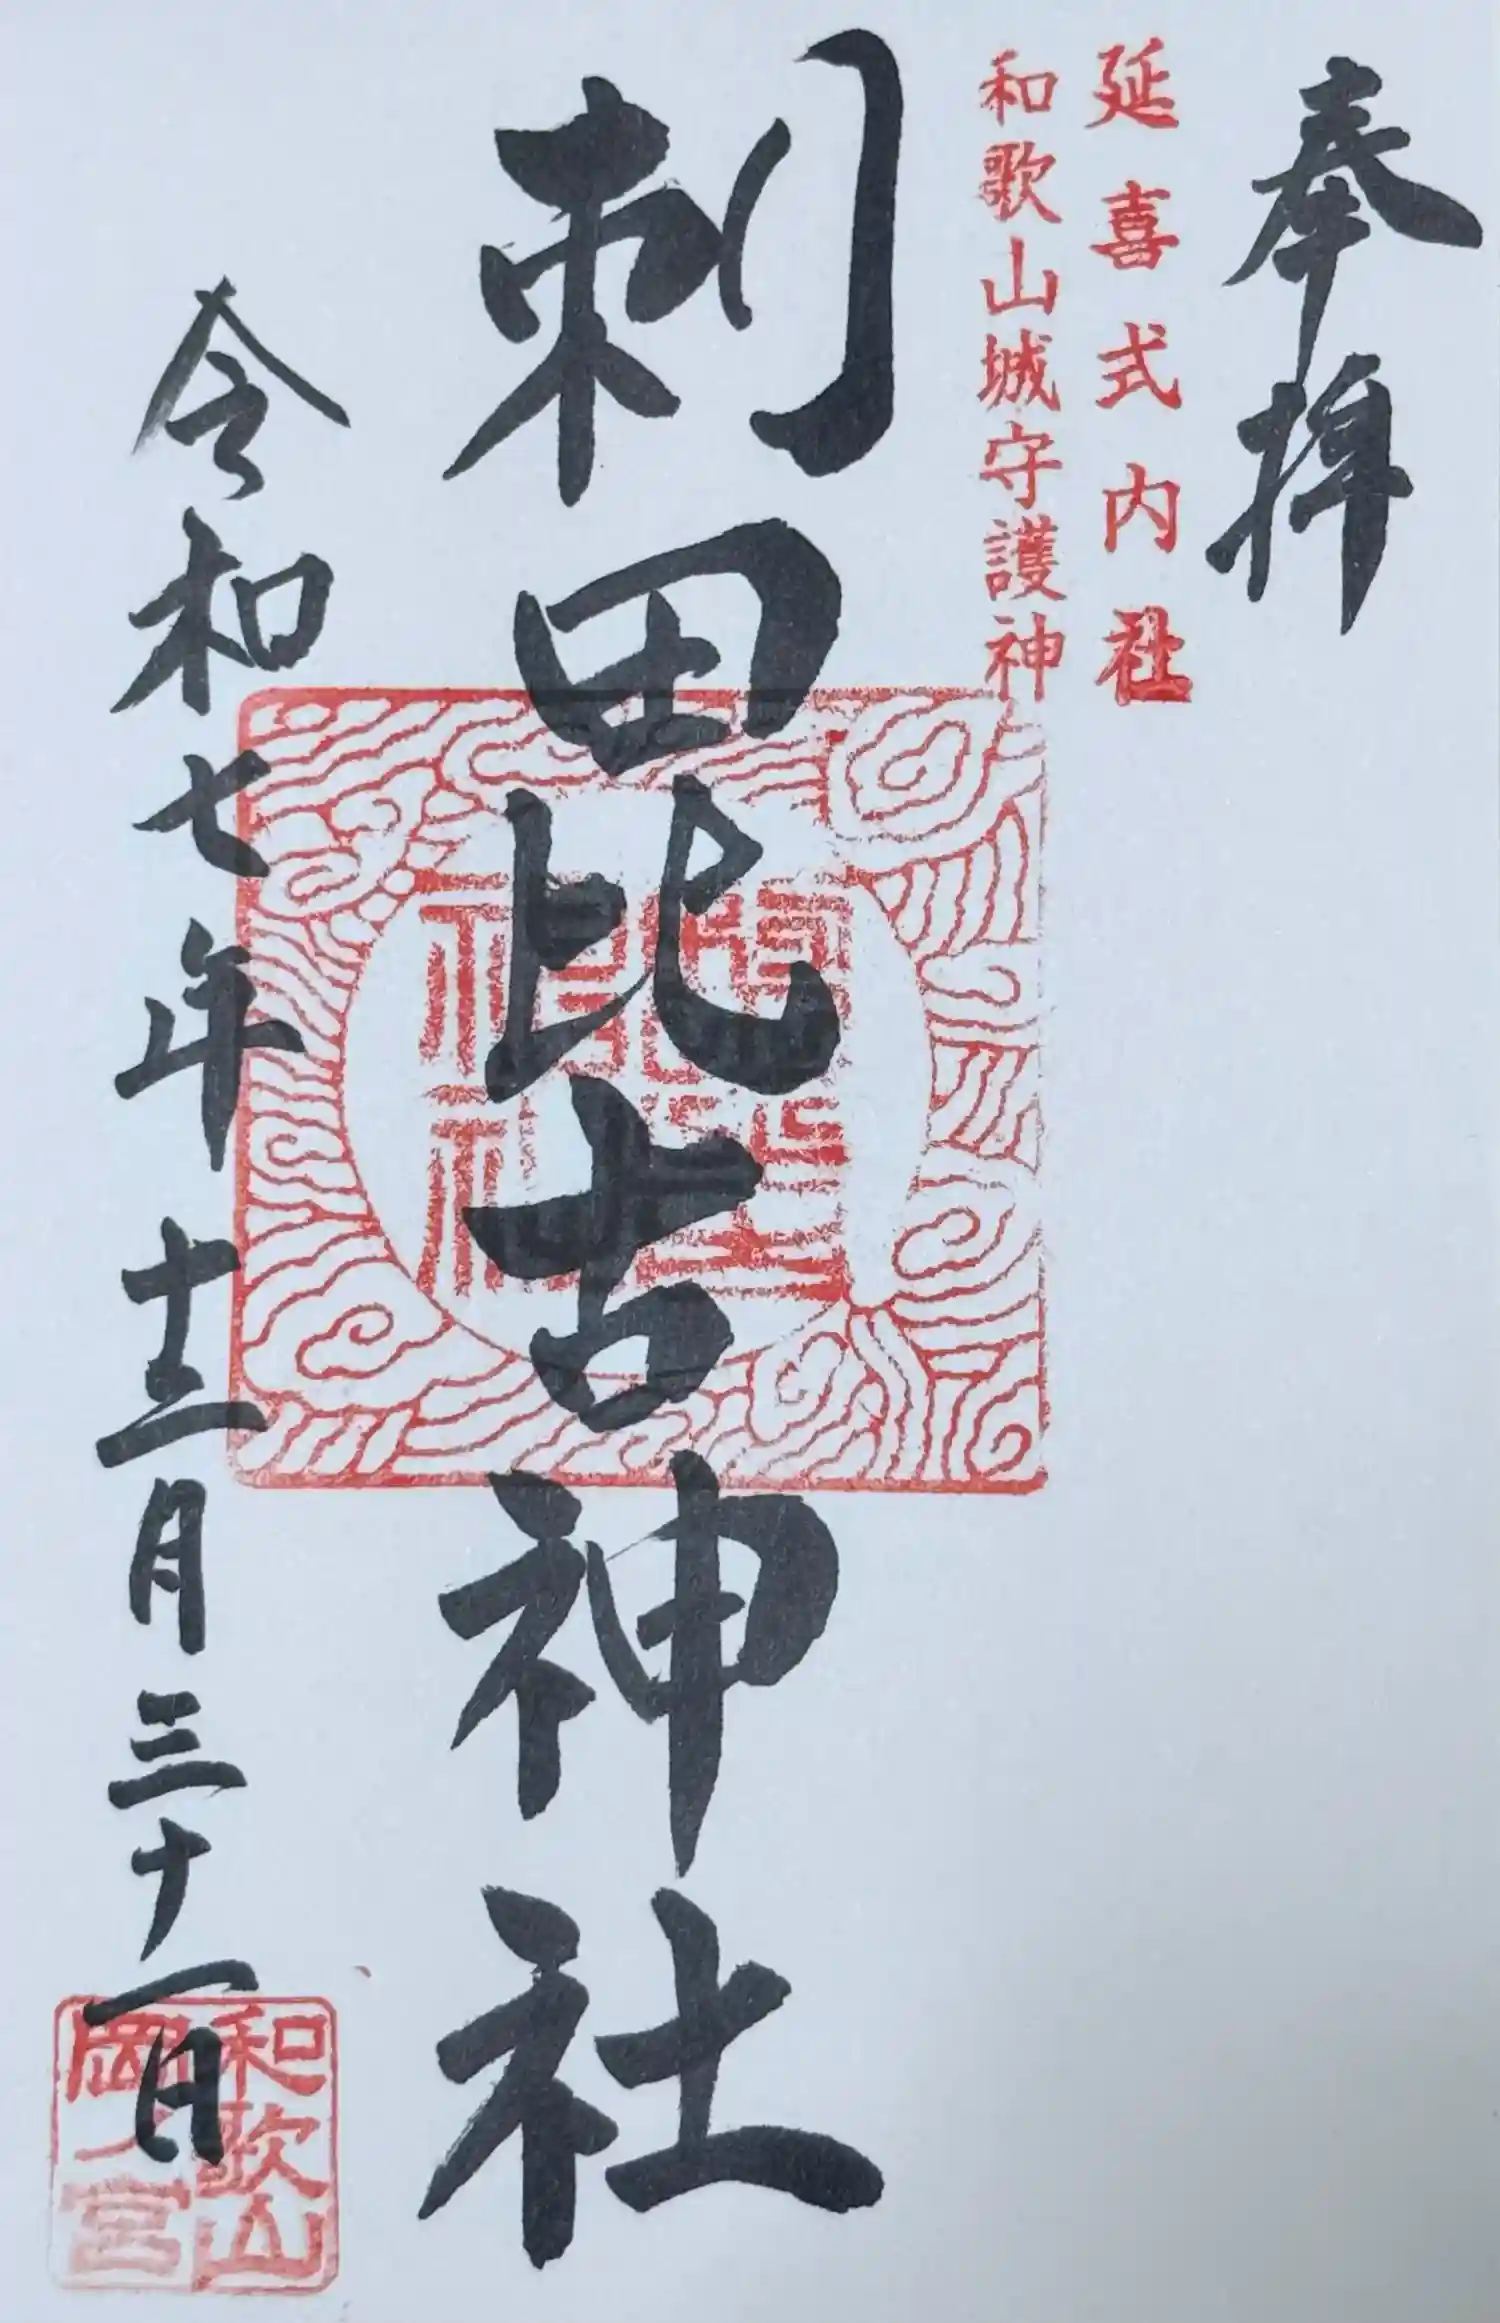 奉拝
延喜式内社
和歌山城守護神
刺田比古神社
令和七年十二月三十一日
和歌山
岡ノ宮